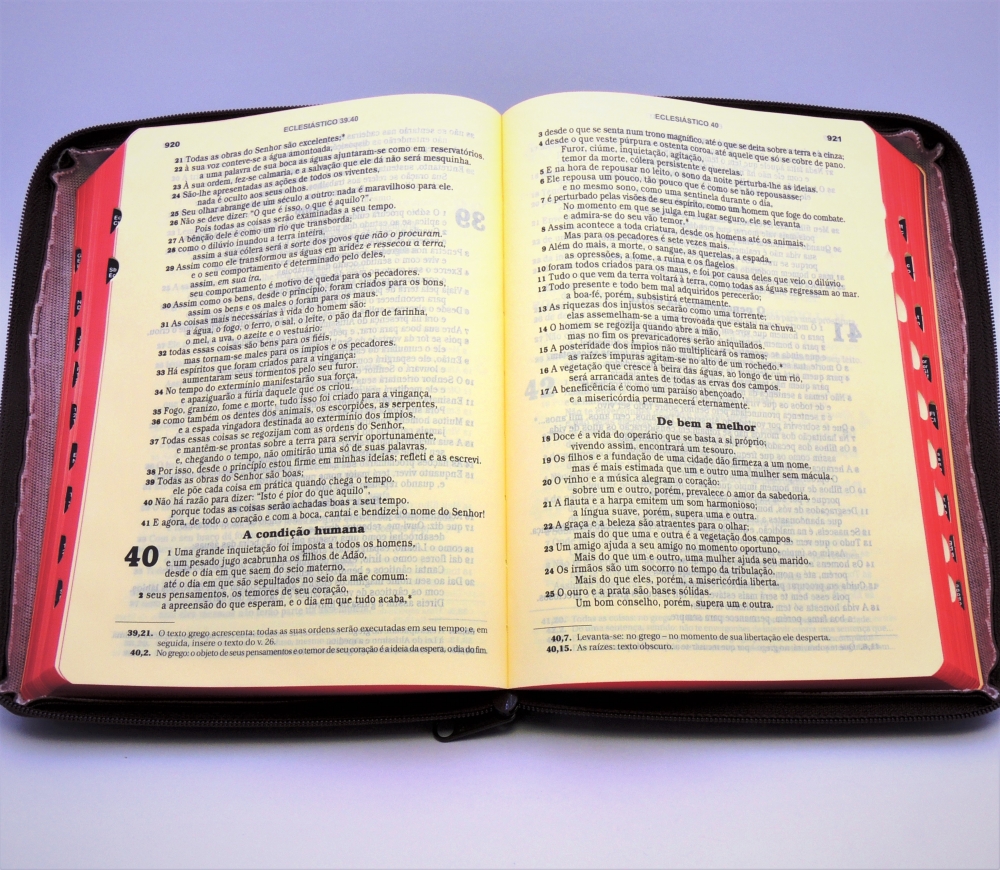 920
ECLESIÁSTICO 39.40
21 Todas as obras do Senhor são excelentes;*
22 à sua voz conteve-se a água amontoada,
a uma palavra de sua boca as águas ajuntaram-se como em reservatórios.
23 À sua ordem, fez-se calmaria, e a salvação que ele dá não será mesquinha.
24 São-lhe apresentadas as ações de todos os viventes,
nada é oculto aos seus olhos.
25 Seu olhar abrange de um século a outro: nada é maravilhoso para ele.
26 Não se deve dizer: "O que é isso, o que é aquilo?".
Pois todas as coisas serão examinadas a seu tempo.
27 A bênção dele é como um rio que transborda;
28 como o dilúvio inundou a terra inteira,
assim a sua cólera será a sorte dos povos que não o procuram.
29 Assim como ele transformou as águas em aridez e ressecou a terra,
e o seu comportamento é determinado pelo deles,
assim, em sua ira,
seu comportamento é motivo de queda para os pecadores.
30 Assim como os bens, desde o princípio, foram criados para os bons,
assim os bens e os males o foram para os maus.
31 As coisas mais necessárias à vida do homem são:
a água, o fogo, o ferro, o sal, o leite, o pão da flor de farinha,
o mel, a uva, o azeite e o vestuário:
32 todas essas coisas são bens para os fiéis,
mas tornam-se males para os ímpios e os pecadores.
33 Há espíritos que foram criados para a vingança;
aumentaram seus tormentos pelo seu furor.
34 No tempo do extermínio manifestarão sua força,
e apaziguarão a fúria daquele que os criou.
35 Fogo, granizo, fome e morte, tudo isso foi criado para a vingança,
36 como também os dentes dos animais, os escorpiões, as serpentes,
e a espada vingadora destinada ao extermínio dos ímpios.
37 Todas essas coisas se regozijam com as ordens do Senhor,
e mantêm-se prontas sobre a terra para servir oportunamente,
e, chegando o tempo, não omitirão uma só de suas palavras.
38 Por isso, desde o princípio estou firme em minhas ideias; refleti e as escrevi.
39 Todas as obras do Senhor são boas;
ele põe cada coisa em prática quando chega o tempo.
40 Não há razão para dizer: "Isto é pior do que aquilo",
porque todas as coisas serão achadas boas a seu tempo.
41 E agora, de todo o coração e com a boca, cantai e bendizei o nome do Senhor!
A condição humana
40 1 Uma grande inquietação foi imposta a todos os homens,
e um pesado jugo acabrunha os filhos de Adão,
desde o dia em que saem do seio materno,
até o dia em que são sepultados no seio da mãe comum:
2 seus pensamentos, os temores de seu coração,
a apreensão do que esperam, e o dia em que tudo acaba.*
39,21. O texto grego acrescenta: todas as suas ordens serão executadas em seu tempo; e, em
seguida, insere o texto do v. 26.
40,2. No grego: o objeto de seus pensamentos e o temor de seu coração é a ideia da espera, o dia do fim.
ECLESIÁSTICO 40
921
3 desde o que se senta num trono magnífico, até o que se deita sobre a terra e a cinza;
4 desde o que veste púrpura e ostenta coroa, até aquele que só se cobre de pano.
Furor, ciúme, inquietação, agitação,
temor da morte, cólera persistente e querelas.
5 E na hora de repousar no leito, o sono da noite perturba-lhe as ideias.
6 Ele repousa um pouco, tão pouco que é como se não repousasse;
e no mesmo sono, como uma sentinela durante o dia,
7 é perturbado pelas visões de seu espírito, como um homem que foge do combate.
No momento em que se julga em lugar seguro, ele se levanta
e admira-se do seu vão temor.*
8 Assim acontece a toda criatura, desde os homens até os animais.
Mas para os pecadores é sete vezes mais.
9 Além do mais, a morte, o sangue, as querelas, a espada,
as opressões, a fome, a ruína e os flagelos
10 foram todos criados para os maus, e foi por causa deles que veio o dilúvio.
11 Tudo o que vem da terra voltará à terra, como todas as águas regressam ao mar.
12 Todo presente e todo bem mal adquiridos perecerão;
a boa-fé, porém, subsistirá eternamente.
13 As riquezas dos injustos secarão como uma torrente;
elas assemelham-se a uma trovoada que estala na chuva.
14 O homem se regozija quando abre a mão,
mas no fim os prevaricadores serão aniquilados.
15 A posteridade dos ímpios não multiplicará os ramos;
as raízes impuras agitam-se no alto de um rochedo.*
16 A vegetação que cresce à beira das águas, ao longo de um rio,
será arrancada antes de todas as ervas dos campos.
17 A beneficência é como um paraíso abençoado,
e a misericórdia permanecerá eternamente.
De bem a melhor
18 Doce é a vida do operário que se basta a si próprio;
vivendo assim, encontrará um tesouro.
19 Os filhos e a fundação de uma cidade dão firmeza a um nome,
mas é mais estimada que um e outro uma mulher sem mácula.
20 O vinho e a música alegram o coração;
sobre um e outro, porém, prevalece o amor da sabedoria.
21 A flauta e a harpa emitem um som harmonioso;
a língua suave, porém, supera uma e outra.
22 A graça e a beleza são atraentes para o olhar;
mais do que uma e outra é a vegetação dos campos.
23 Um amigo ajuda a seu amigo no momento oportuno,
Mais do que um e outro, uma mulher ajuda seu marido.
24 Os irmãos são um socorro no tempo da tribulação.
Mais do que eles, porém, a misericórdia liberta.
25 O ouro e a prata são bases sólidas.
Um bom conselho, porém, supera um e outra.
40,7. Levanta-se: no grego – no momento de sua libertação ele desperta.
40,15. As raízes: texto obscuro.